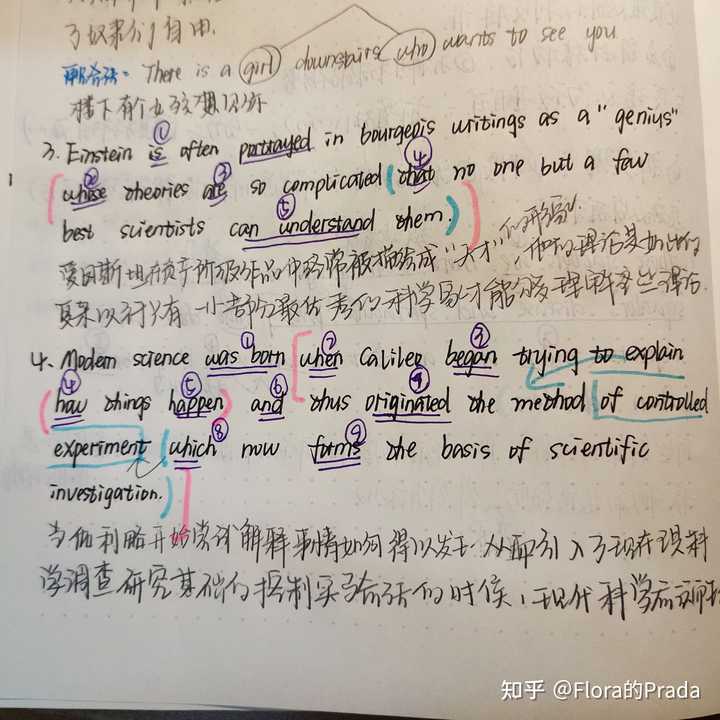 了奴隶们自由.
There is a girl downstairs who wants to see you
楼下有个女孩想见你
3. Einstein is often portrayed in bourgeois writings as a "genius"
whose theories are so complicated (that no one but a few
best scientists can understand them.)
爱因斯坦在资产阶级作品中经常被描绘成"天才"的形象,他的理论是如此的
复杂以至于只有一小部分最优秀的科学家才能够理解这些理论.
4. Modern science was born when Galileo began trying to explain
how things happen and thus originated the method of controlled
experiment which now forms the basis of scientific
investigation.
当伽利略开始尝试解释事情如何得以发生 从而引入了现在现科
学调查研究基础的控制实验方法的时候,现代科学应
知乎 @Flora的Prada